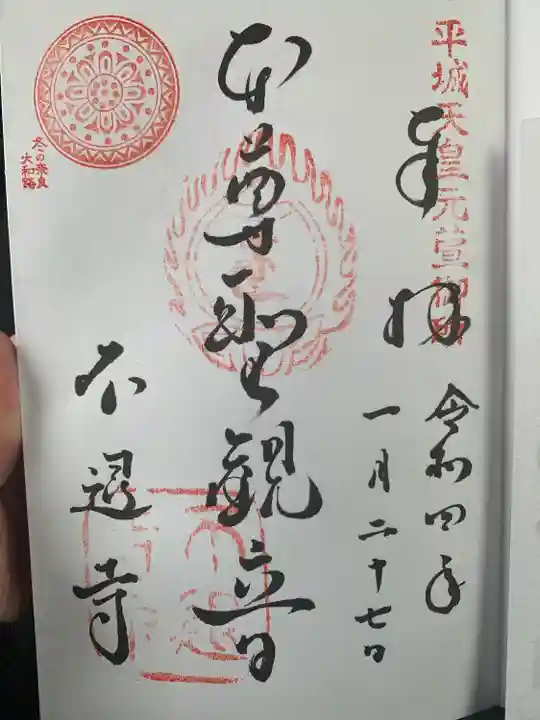 平城天皇元萱御所
奉拝
令和四年
一月二十七日
本尊聖観音
不退寺
冬の奈良
大和路